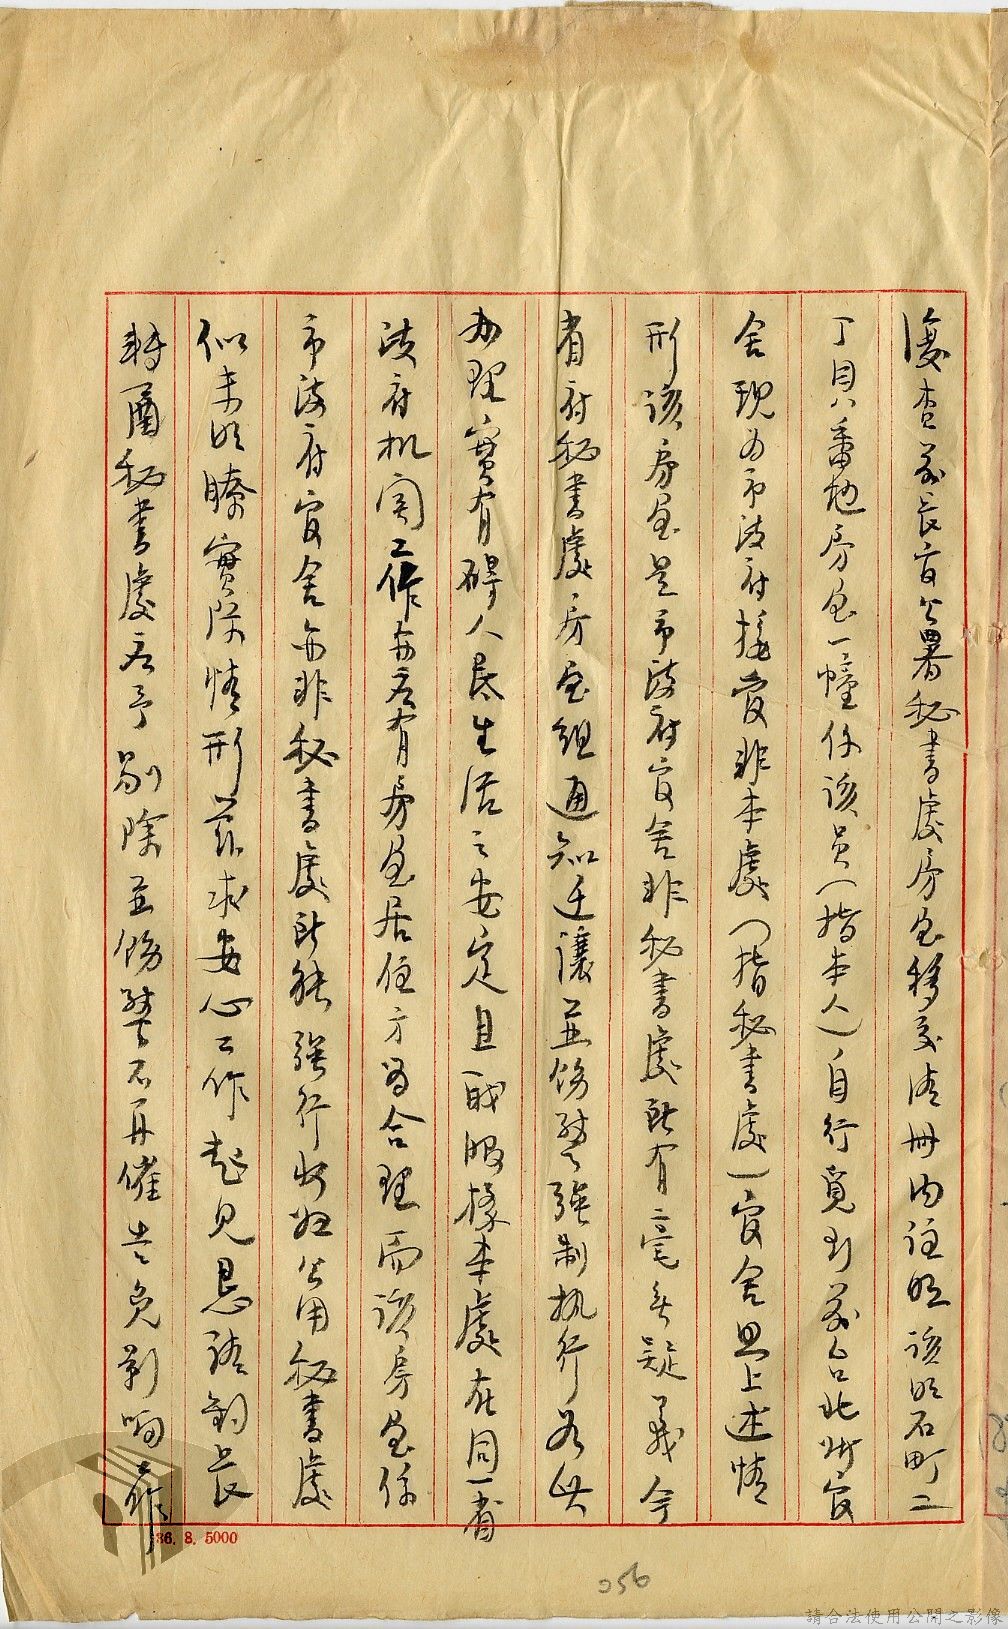 復查前長官公署秘書處房屋移交清冊內註明該明石町二
丁目八番地房屋一幢係該員(指本人)自行覓到前台北州官
舍現為市政府接管非本處(指秘書處)官舍照上述情
形該房屋是市政府官舍非秘書處所有毫無疑義今
省府秘書處房屋組通知迁讓並飭警強制執行如此
办理實有碍人民生活之安定且職服務本處在同一省
政府机関工作亦應有房屋居住方為合理而該房屋係
市政府官舍亦非秘書處所能強行收归公用秘書處
似未明瞭實際情形茲求安心工作起見恳請鈞長
轉函秘書處應予剔除並飭警不再催告免影响工作
36. 8. 5000
056
請合法使用公開之影像